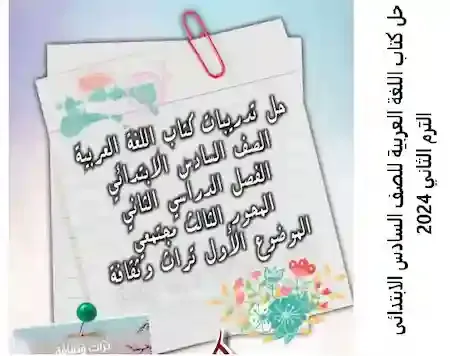 حل تدريبات كتاب اللغة العربية
الصف السادس الابتدائي
الفصل الدراسي الثاني
المحور الثالث مجتمعي
الموضوع الأول تراث وثقافة
تراث وثقافة
حل كتاب اللغة العربية للصف السادس الابتدائى
الترم الثاني 2024